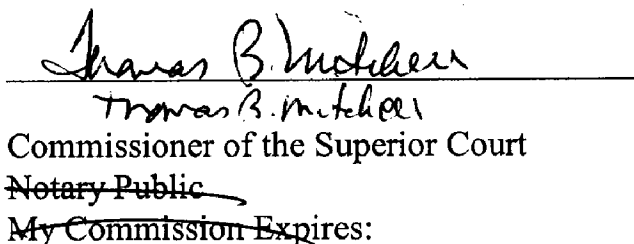 Thomas B. Mitchell
Thomas B. Mitchell
Commissioner of the Superior Court
Notary Public
My Commission Expires: